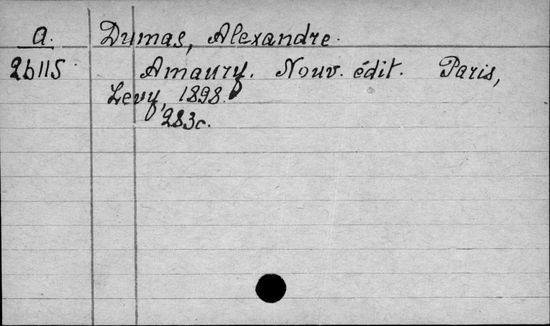 a. Dumas, Alexandre.
26115 Amaury. Nouv. édit. Paris,
Levy, 1898.
283c.